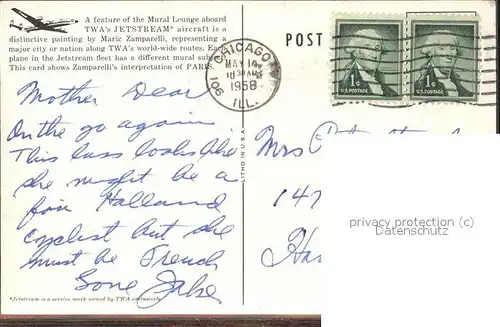 A feature of the Mural Lounge aboard
TWA's JETSTREAM* aircraft is a
distinctive painting by Mario Zamparelli, representing a
major city or nation along TWA's world-wide routes. Each
plane in the Jetstream fleet has a different mural subject.
This card shows Zamparelli's interpretation of PARIS.
POST
CHICAGO
MAY 14
10 30 AM
1958
ILL.
106
1¢
U.S. POSTAGE
1¢
U.S. POSTAGE
Mother Dear
On the go again
This lass looks like
she might be a
fair Holland
cyclist but she
must be French
Love Jake
LITHO IN U.S.A.
Mrs
147
Ha
privacy protection (c)
Datenschutz
*Jetstream is a service mark owned by TWA exclusively